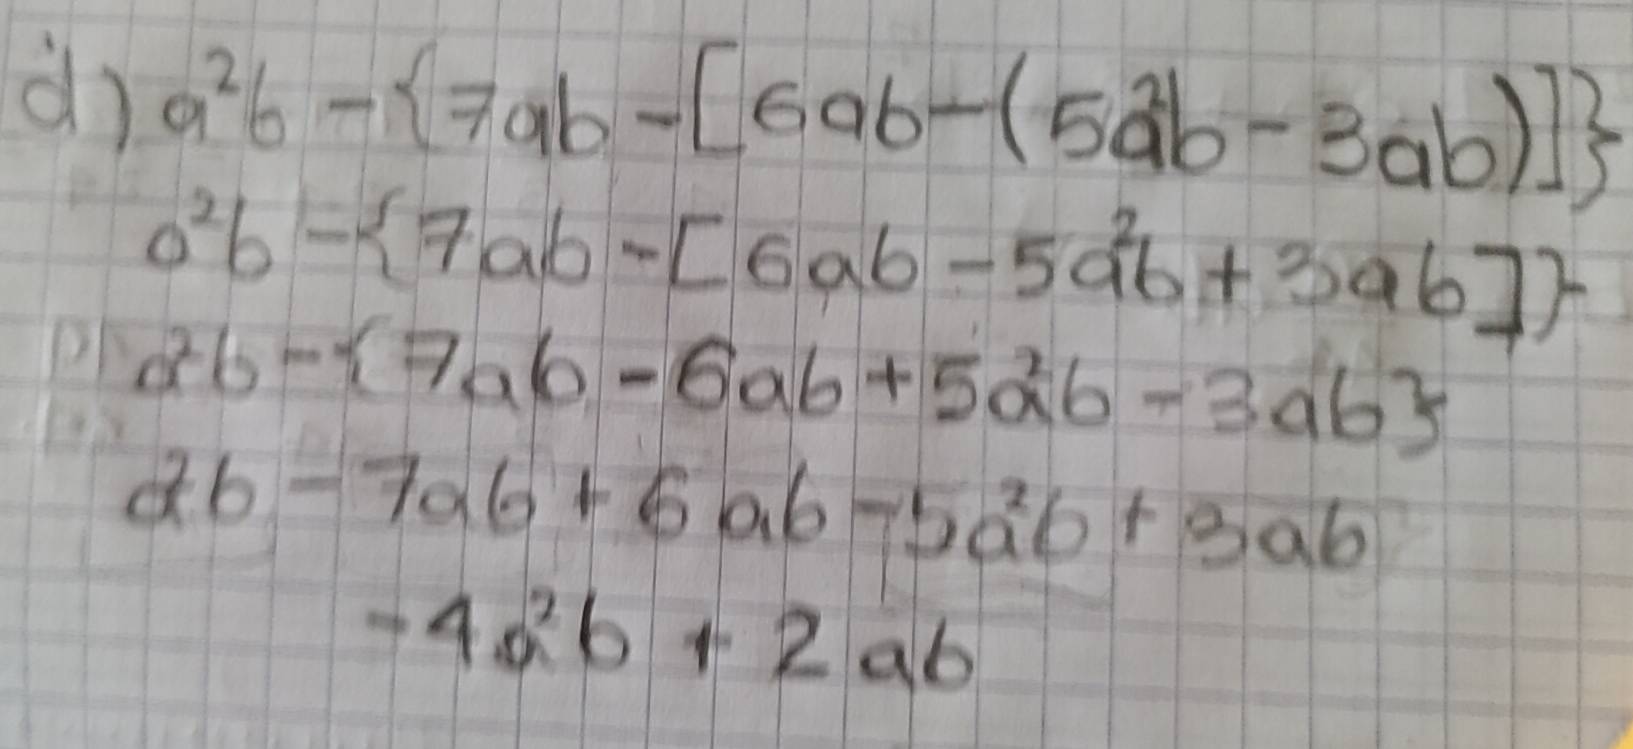 d) a²b - {7ab - [6ab - (5a²b - 3ab)]}
a²b - {7ab - [6ab - 5a²b + 3ab]}
a²b - {7ab - 6ab + 5a²b - 3ab}
a²b - 7ab + 6ab - 5a²b + 3ab
-4a²b + 2ab